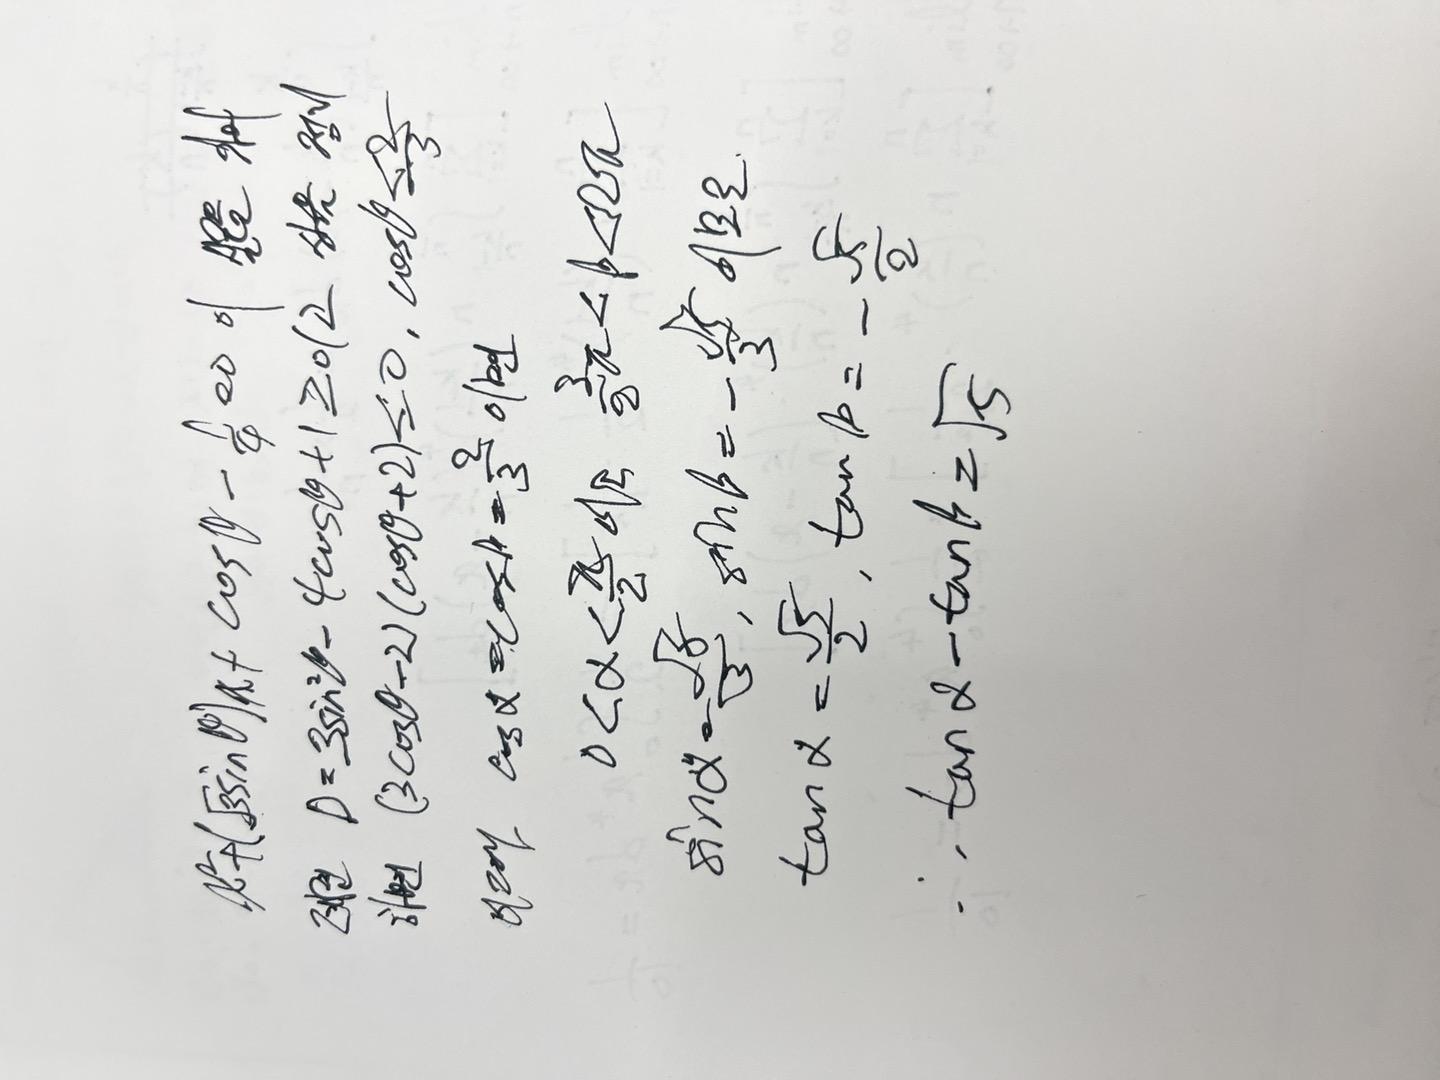 x²+(√3sinθ)x+cosθ-1/4=0이 실근을 가
지려면 D=3sin²θ-4cosθ+1≥0 (2 식을 정리
하면 (3cosθ-2)(cosθ+2)≤0, cosθ≤2/3
여기서 cosα=cosβ=2/3 이면
0<α<π/2 이고 3/2π<β<2π
sinα=√5/3, sinβ=-√5/3 이므로
tanα=√5/2, tanβ=-√5/2
∴ tanα-tanβ=√5